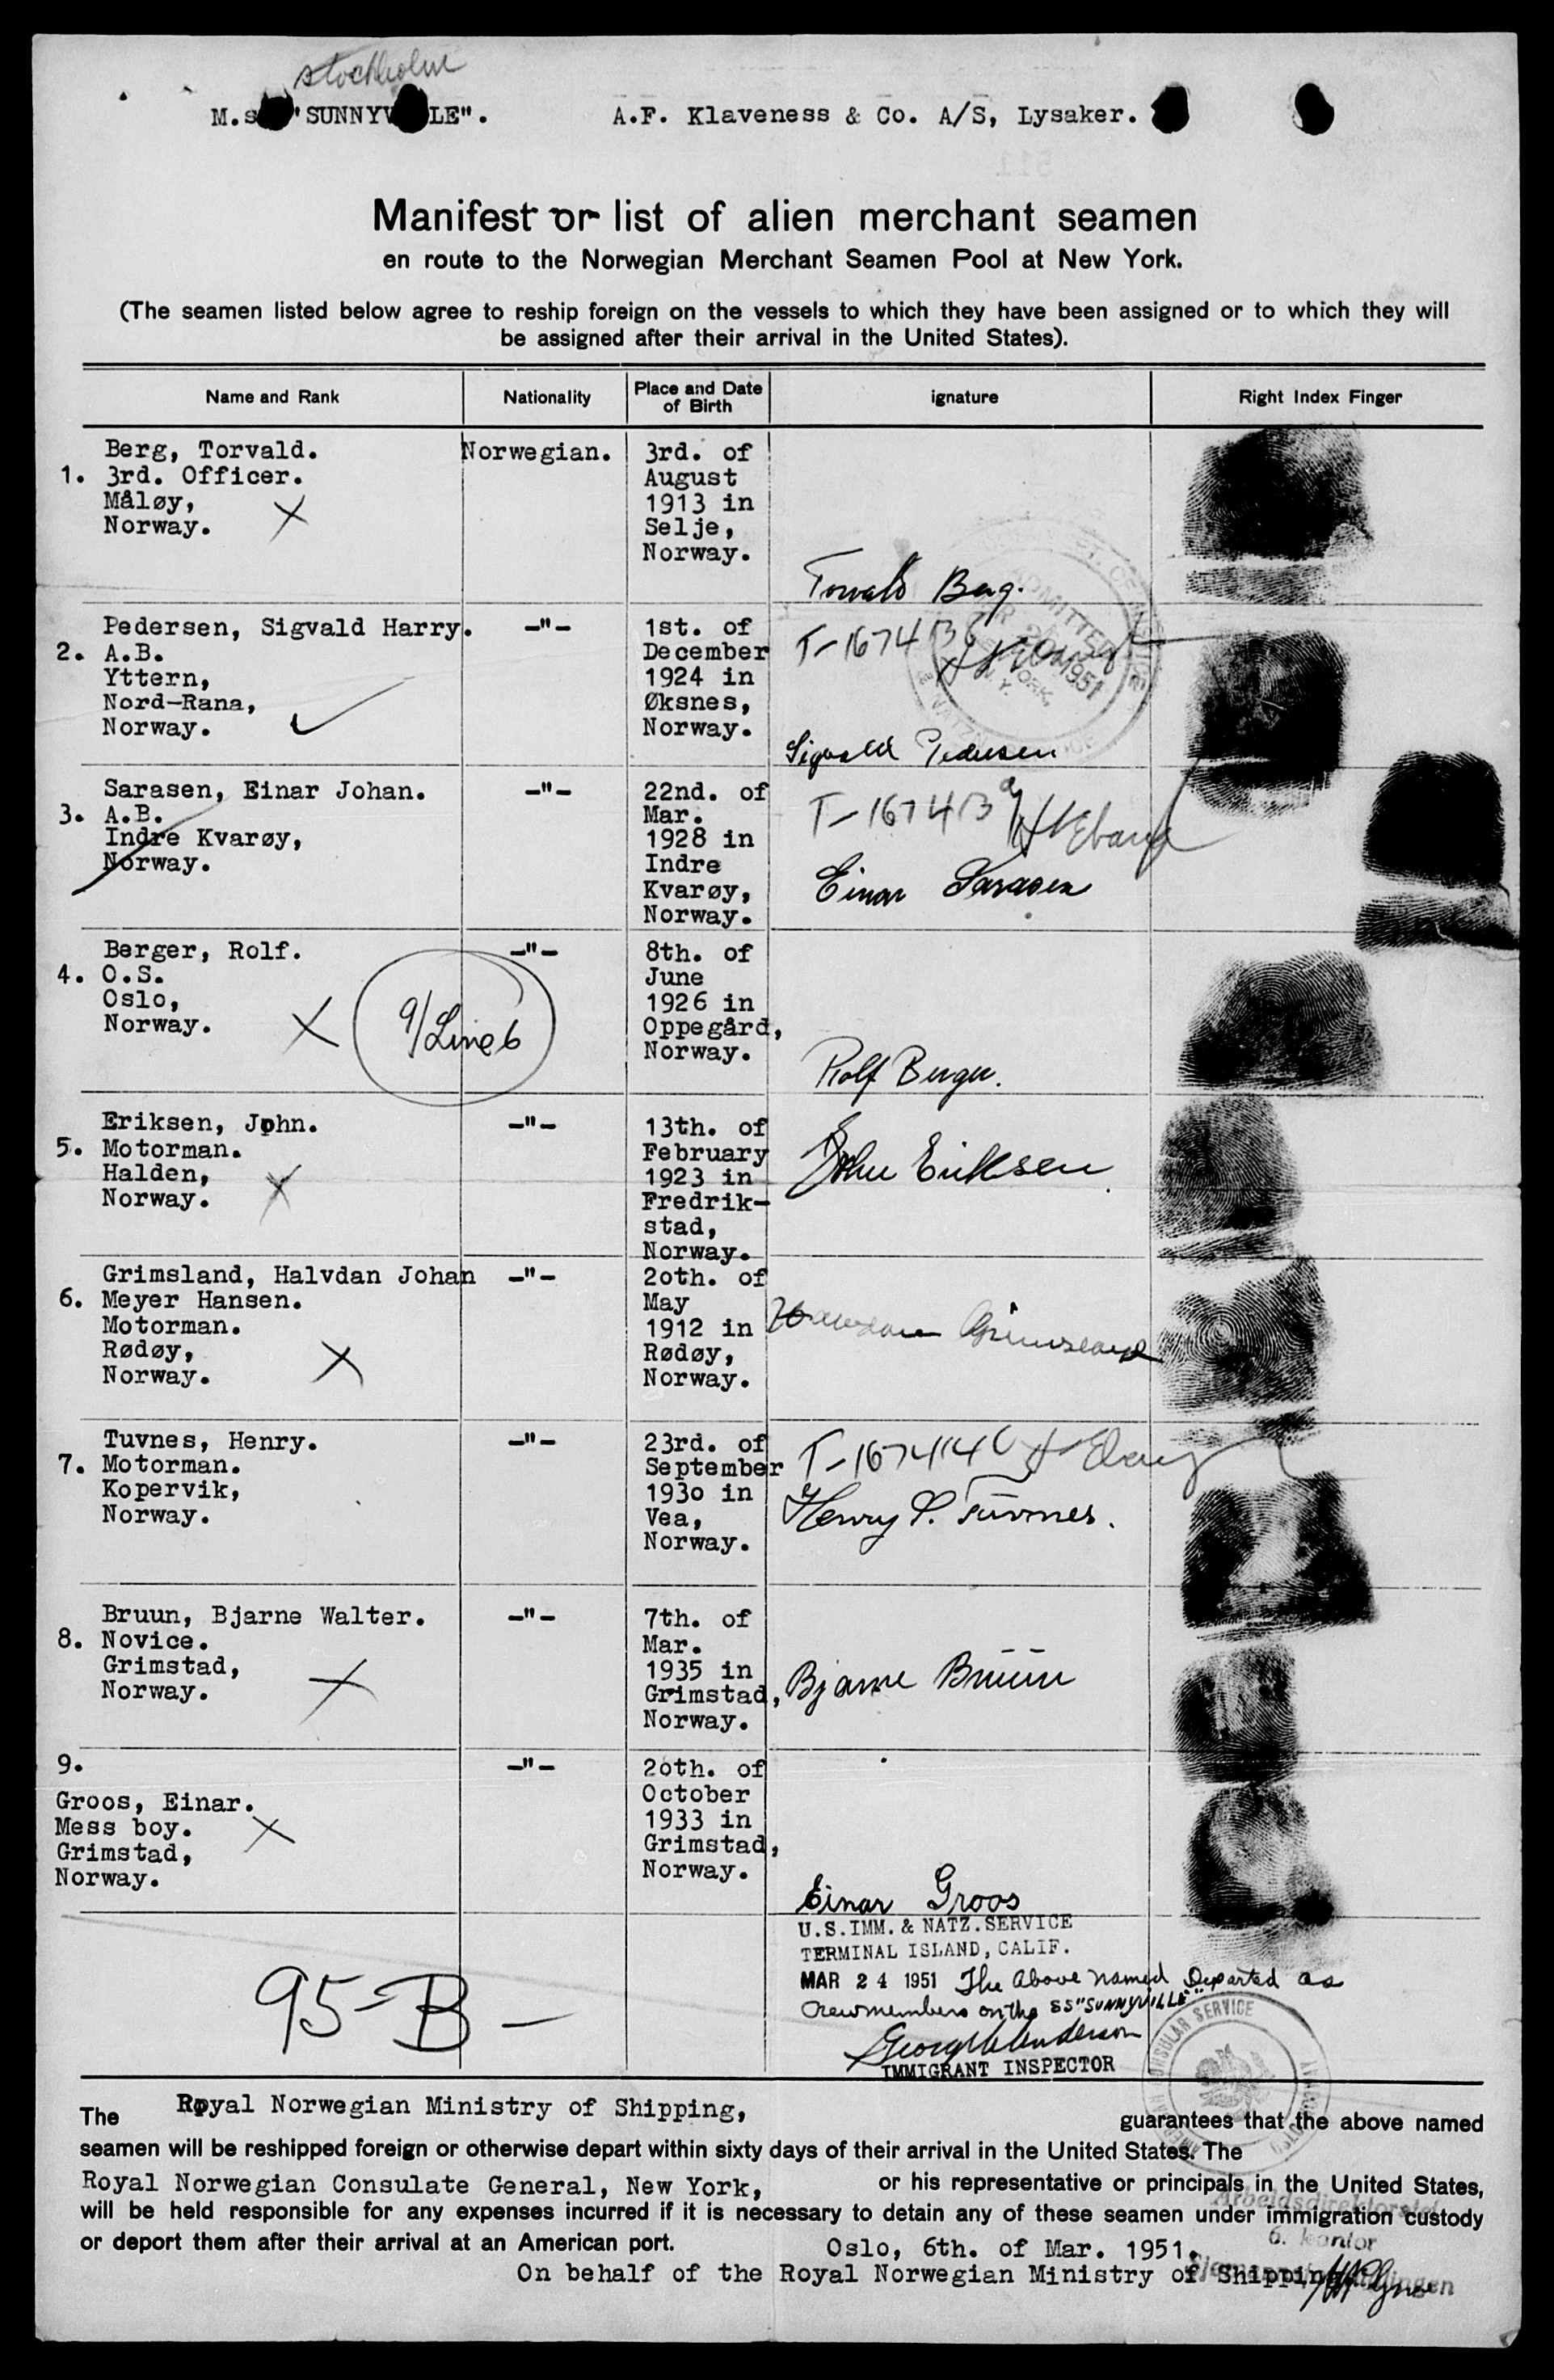 Stockholm
M.s "SUNNYV LE". A.F. Klaveness & Co. A/S, Lysaker.
Manifest or list of alien merchant seamen
en route to the Norwegian Merchant Seamen Pool at New York.
(The seamen listed below agree to reship foreign on the vessels to which they have been assigned or to which they will
be assigned after their arrival in the United States).
Name and Rank
Nationality
Place and Date
of Birth
ignature
Right Index Finger
1.
Berg, Torvald.
3rd. Officer.
Måløy,
Norway.
X
Norwegian.
3rd. of
August
1913 in
Selje,
Norway.
Torvald Berg.
2.
Pedersen, Sigvald Harry.
A.B.
Yttern,
Nord-Rana,
Norway.
-"-
1st. of
December
1924 in
Øksnes,
Norway.
T-1674136
ADMITTED
1951
Sigvald Pedersen
3.
Sarasen, Einar Johan.
A.B.
Indre Kvarøy,
Norway.
-"-
22nd. of
Mar.
1928 in
Indre
Kvarøy,
Norway.
T-1674139
Einar Sarasen
4.
Berger, Rolf.
O.S.
Oslo,
Norway.
X
9/Line 6
-"-
8th. of
June
1926 in
Oppegård,
Norway.
Rolf Berger.
5.
Eriksen, John.
Motorman.
Halden,
Norway.
X
-"-
13th. of
February
1923 in
Fredrik-
stad,
Norway.
John Eriksen
6.
Grimsland, Halvdan Johan
Meyer Hansen.
Motorman.
Rødøy,
Norway.
X
-"-
2oth. of
May
1912 in
Rødøy,
Norway.
Halvdan Grimsland
7.
Tuvnes, Henry.
Motorman.
Kopervik,
Norway.
-"-
23rd. of
September
193o in
Vea,
Norway.
T-1674140
Henry S. Tuvnes.
8.
Bruun, Bjarne Walter.
Novice.
Grimstad,
Norway.
X
-"-
7th. of
Mar.
1935 in
Grimstad,
Norway.
Bjarne Bruun
9.
Groos, Einar.
Mess boy.
Grimstad,
Norway.
X
-"-
2oth. of
October
1933 in
Grimstad,
Norway.
Einar Groos
U.S.IMM. & NATZ.SERVICE
TERMINAL ISLAND, CALIF.
MAR 24 1951 The above named Departed as
crewmembers on the SS "SUNNYVILLE"
George Anderson
IMMIGRANT INSPECTOR
95-B-
The Royal Norwegian Ministry of Shipping, guarantees that the above named
seamen will be reshipped foreign or otherwise depart within sixty days of their arrival in the United States. The
Royal Norwegian Consulate General, New York, or his representative or principals in the United States,
will be held responsible for any expenses incurred if it is necessary to detain any of these seamen under immigration custody
or deport them after their arrival at an American port.
Arbeidsdirektoratet
6. kontor
Oslo, 6th. of Mar. 1951.
On behalf of the Royal Norwegian Ministry of Shipping